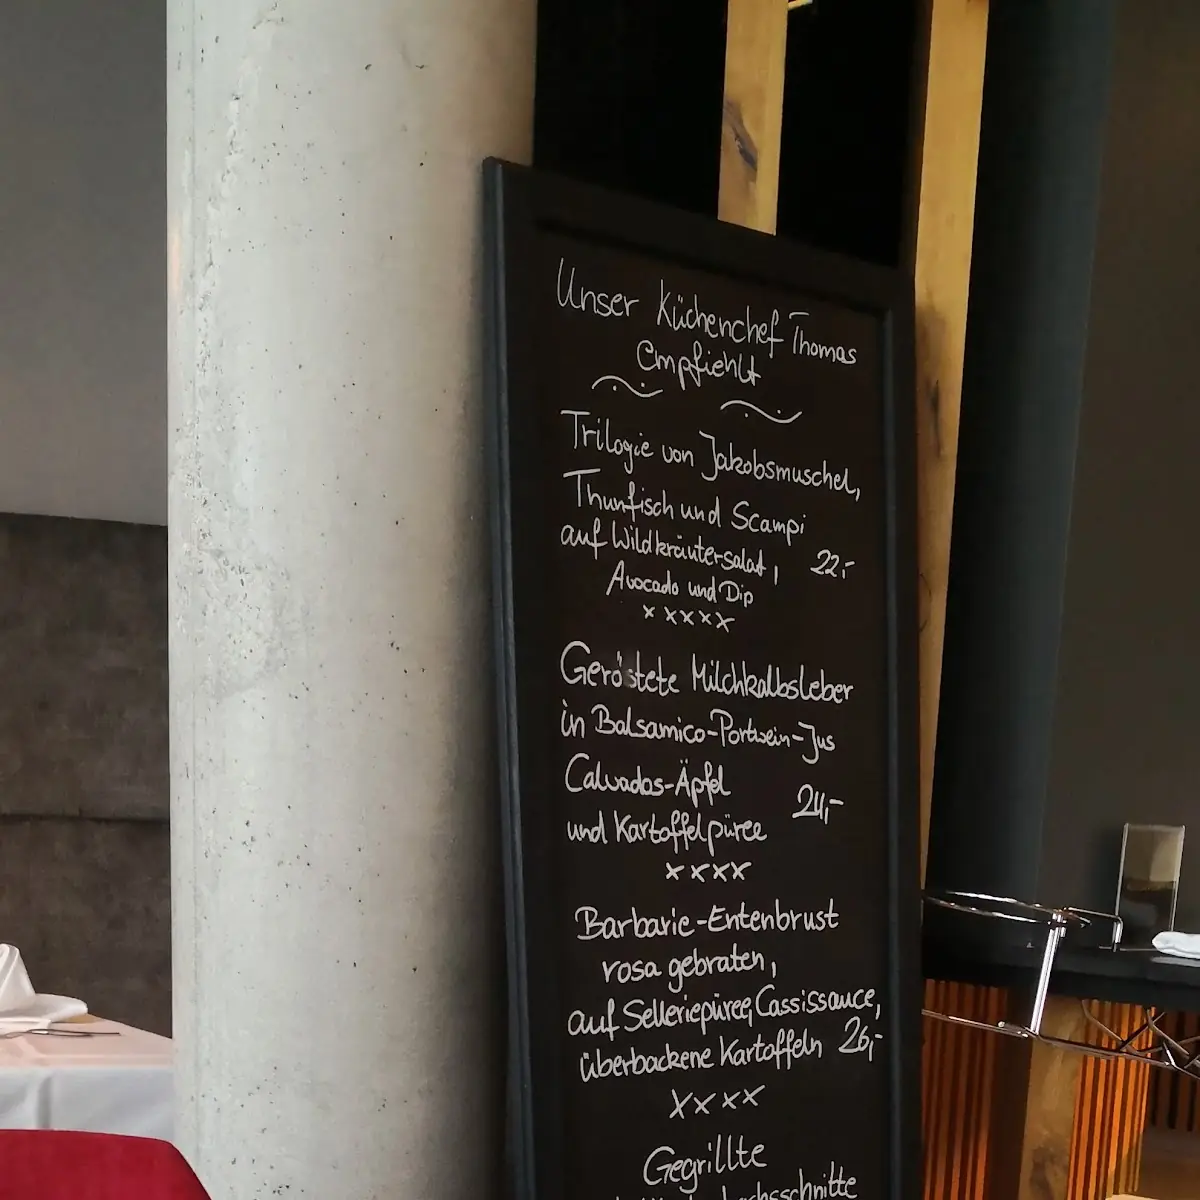 Unser Küchenchef Thomas
empfiehlt
Trilogie von Jakobsmuschel,
Thunfisch und Scampi
auf Wildkräutersalat, 22,-
Avocado und Dip
xxxxx
Geröstete Milchkalbsleber
in Balsamico-Portwein-Jus
Calvados-Äpfel
24,-
und Kartoffelpüree
xxxx
Barbarie-Entenbrust
rosa gebraten,
auf Selleriepüree, Cassissauce,
überbackene Kartoffeln 26,-
xxxx
Gegrillte